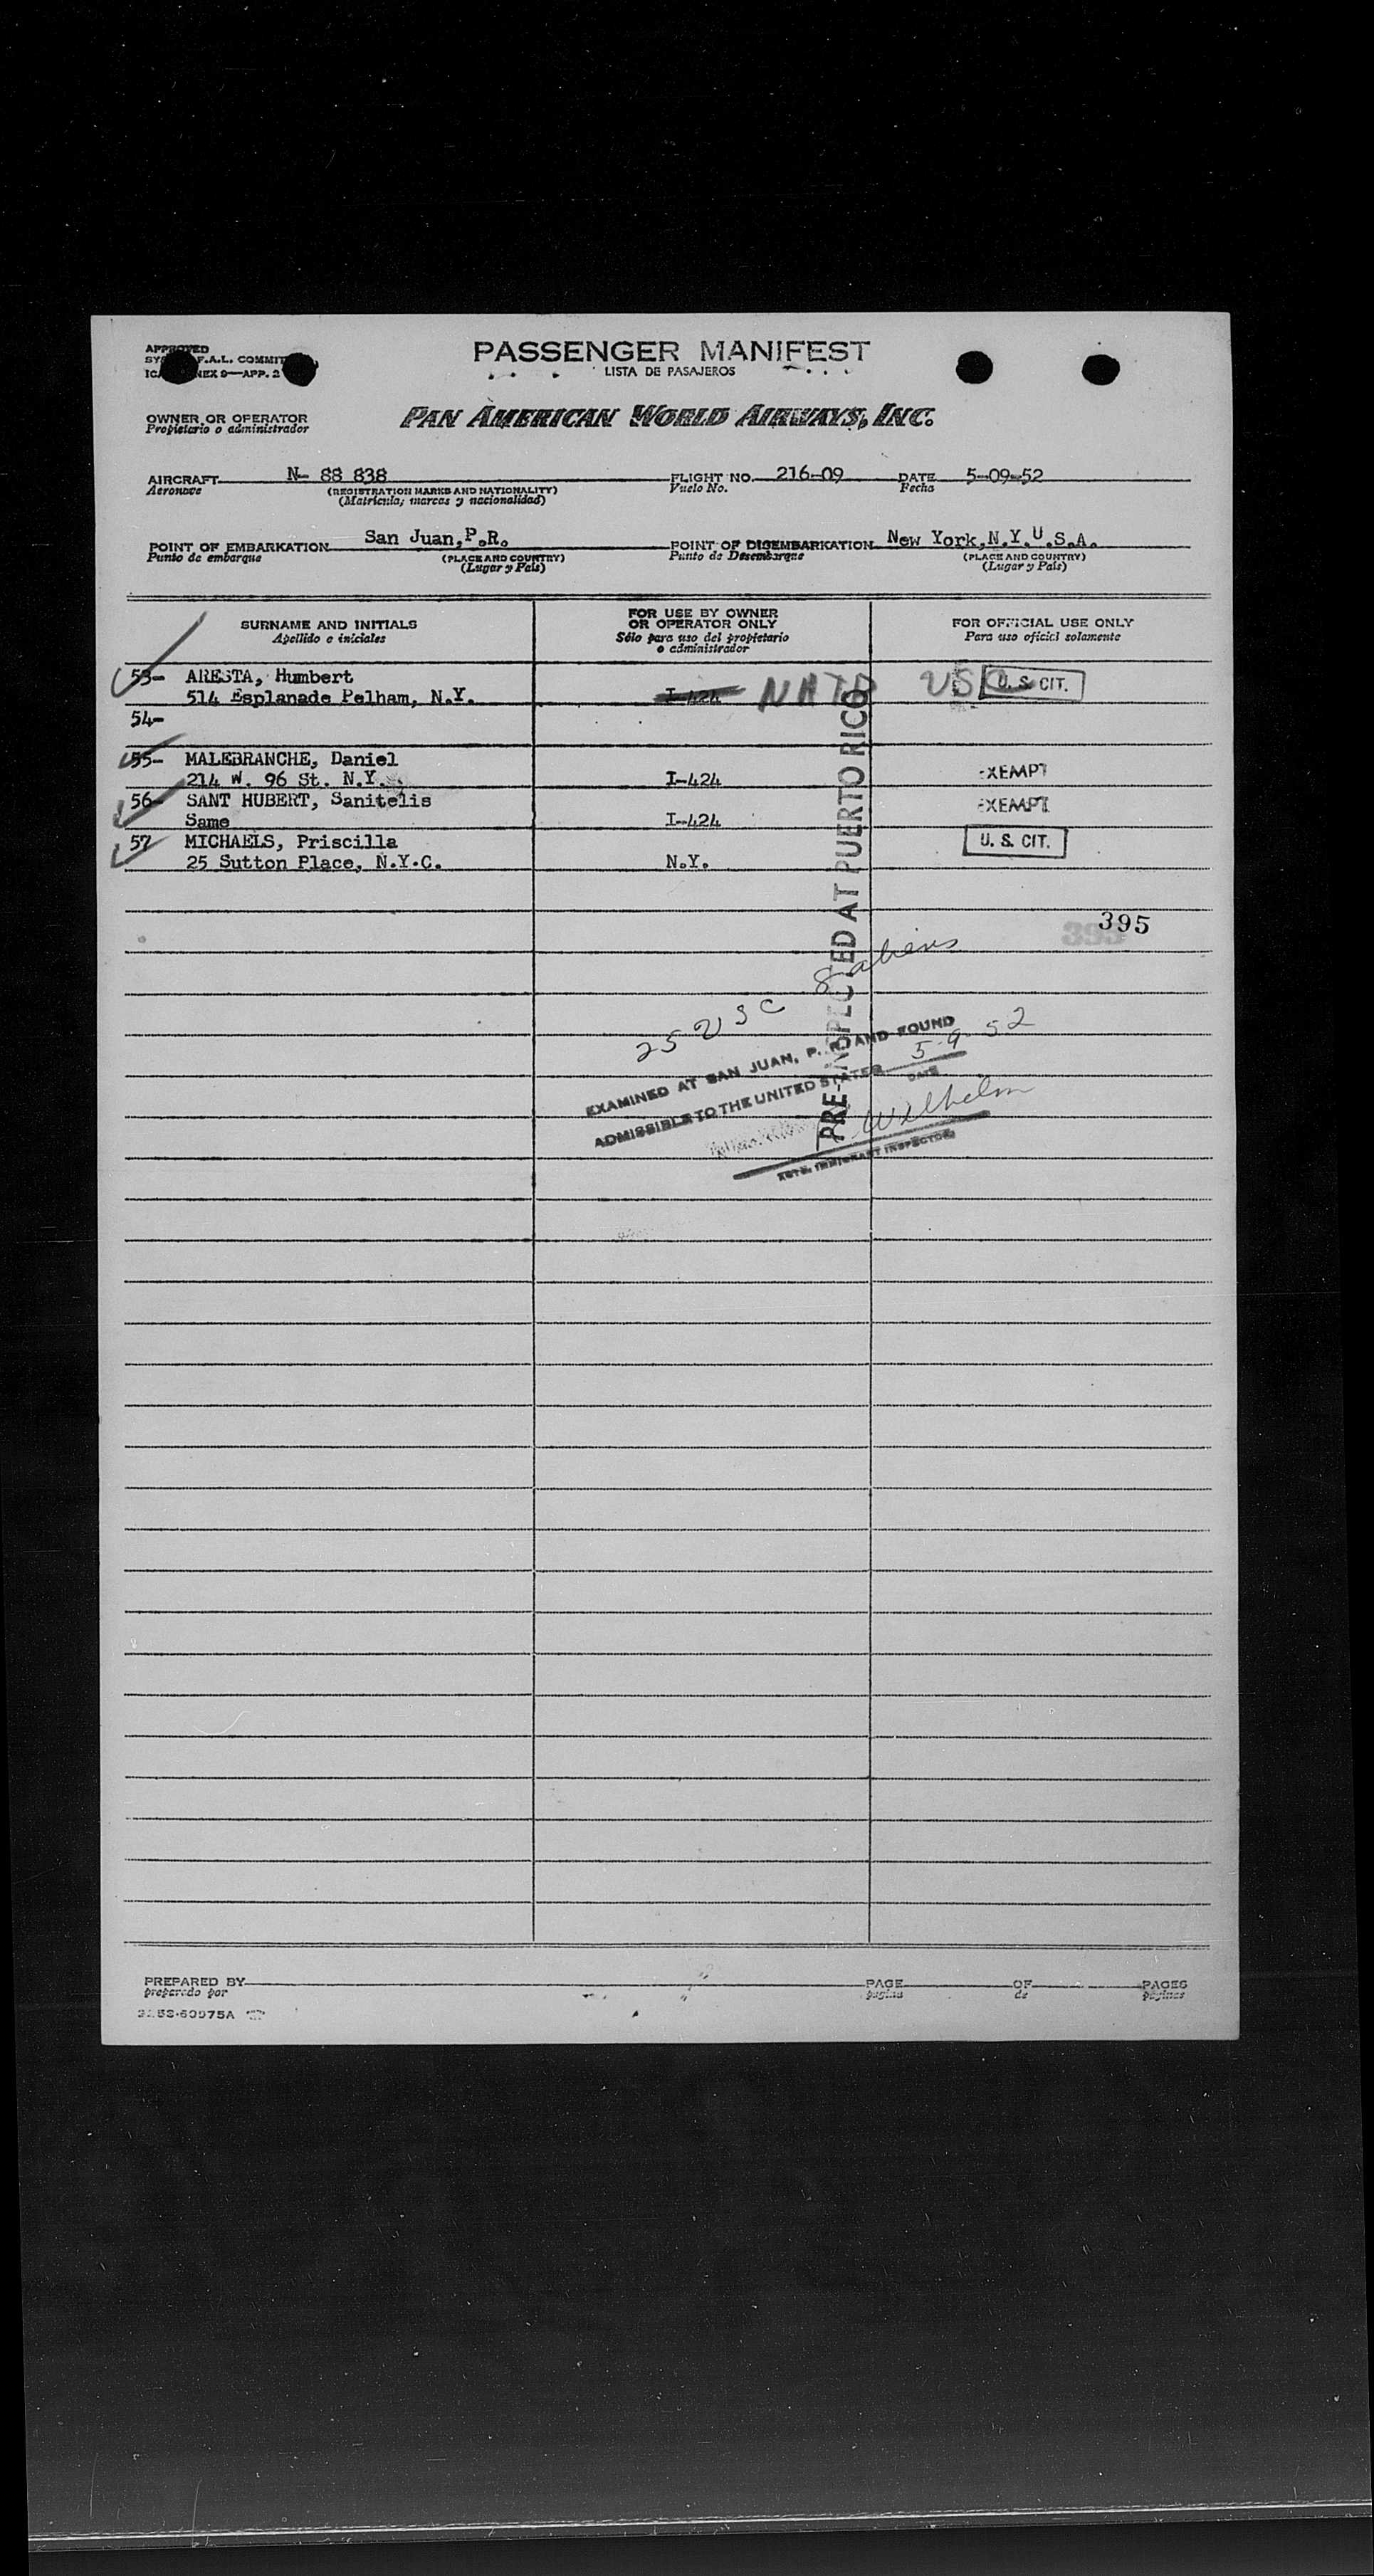 PASSENGER MANIFEST
LISTA DE PASAJEROS
APPROVED
F.A.L.
APP. 2
OWNER OR OPERATOR
Propietario o administrador
PAN AMERICAN WORLD AIRWAYS, INC.
AIRCRAFT N- 88 838 FLIGHT NO. 216-09 DATE 5-09-52
Aeronave (REGISTRATION MARKS AND NATIONALITY) Vuelo No. Fecha
(Matricula, marcas y nacionalidad)
POINT OF EMBARKATION San Juan,P.R. POINT OF DISEMBARKATION New York,N.Y.U.S.A.
Punto de embarque (PLACE AND COUNTRY) Punto de Desembarque (PLACE AND COUNTRY)
(Lugar y País) (Lugar y País)
SURNAME AND INITIALS
Apellido e iniciales
FOR USE BY OWNER
OR OPERATOR ONLY
Sólo para uso del propietario
o administrador
FOR OFFICIAL USE ONLY
Para uso oficial solamente
53- ARESTA, Humbert
514 Esplanade Pelham, N.Y. I-424 USC U. S. CIT.
54-
55- MALEBRANCHE, Daniel
214 W. 96 St. N.Y. I-424 EXEMPT
56- SANT HUBERT, Sanitelis EXEMPT
Same I-424
57 MICHAELS, Priscilla U. S. CIT.
25 Sutton Place, N.Y.C. N.Y.
395
PRE-INSPECTED AT PUERTO RICO
25 USC 8 aliens
EXAMINED AT SAN JUAN, P. R. AND FOUND
ADMISSIBLE TO THE UNITED STATES 5-9-52
DATE
Wilhelm
IMMIGRANT INSPECTOR
PREPARED BY PAGE OF PAGES
preparado por página de páginas